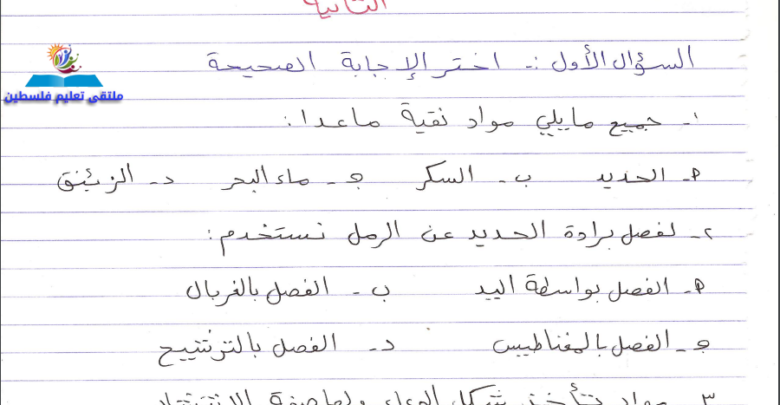 الثانية
السؤال الأول :- اختر الإجابة الصحيحة
ملتقى تعليم فلسطين
١- جميع مايلي مواد نقية ماعدا :
أ- الحديد ب- السكر ج- ماء البحر د- الزئبق
٢- لفصل برادة الحديد عن الرمل نستخدم :
أ- الفصل بواسطة اليد ب- الفصل بالغربال
ج- الفصل بالمغناطيس د- الفصل بالترشيح
٣- مواد تأخذ شكل الوعاء ولها صفة الانتشار